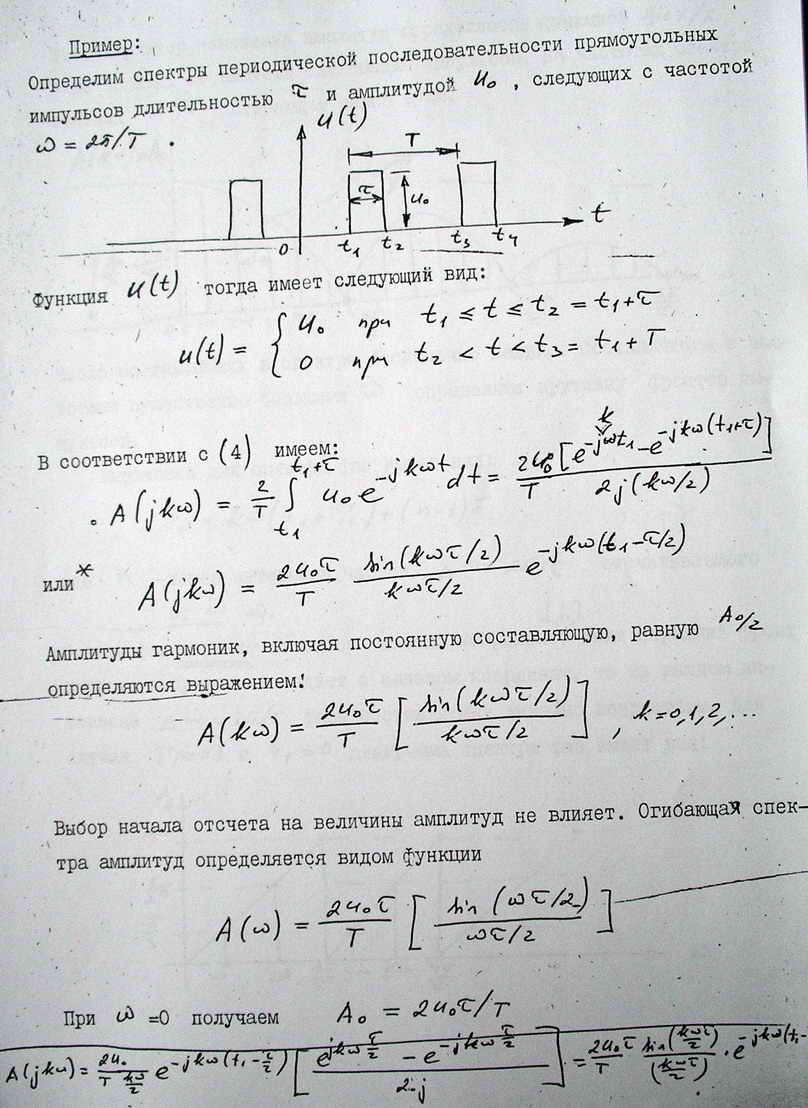 Пример:
Определим спектры периодической последовательности прямоугольных
импульсов длительностью τ и амплитудой u₀ , следующих с частотой
ω = 2π/T .
u(t)
T
τ
u₀
0 t₁ t₂ t₃ t₄ t
Функция u(t) тогда имеет следующий вид:
u(t) = { u₀ при t₁ ≤ t ≤ t₂ = t₁+τ
0 при t₂ < t < t₃ = t₁+T
В соответствии с (4) имеем:
A(jkω) = 2/T ∫_{t₁}^{t₁+τ} u₀e^{-jkωt}dt = 2u₀[e^{-jkωt₁} - e^{-jkω(t₁+τ)}] / T 2j(kω/2)
или* A(jkω) = 2u₀τ/T sin(kωτ/2)/(kωτ/2) e^{-jkω(t₁-τ/2)}
Амплитуды гармоник, включая постоянную составляющую, равную A₀/2
определяются выражением:
A(kω) = 2u₀τ/T [sin(kωτ/2)/(kωτ/2)] , k=0,1,2,...
Выбор начала отсчета на величины амплитуд не влияет. Огибающая спек-
тра амплитуд определяется видом функции
A(ω) = 2u₀τ/T [sin(ωτ/2)/(ωτ/2)]
При ω =0 получаем A₀ = 2u₀τ/T
A(jkω) = 2u₀/(T kω/2) e^{-jkω(t₁-τ/2)} [(e^{jkω τ/2} - e^{-jkω τ/2})/2j] = 2u₀τ/T sin(kωτ/2)/(kωτ/2) · e^{-jkω(t₁-